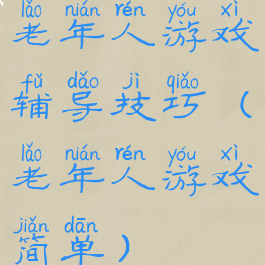 lǎo nián rén yóu xì
老年人游戏
fǔ dǎo jì qiǎo
辅导技巧（
lǎo nián rén yóu xì
老年人游戏
jiǎn dān
简单）